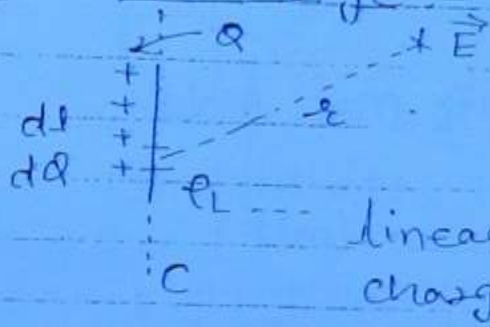 Q
E
+
+
r
dl +
dQ +
ρL ----
linea
C
charg